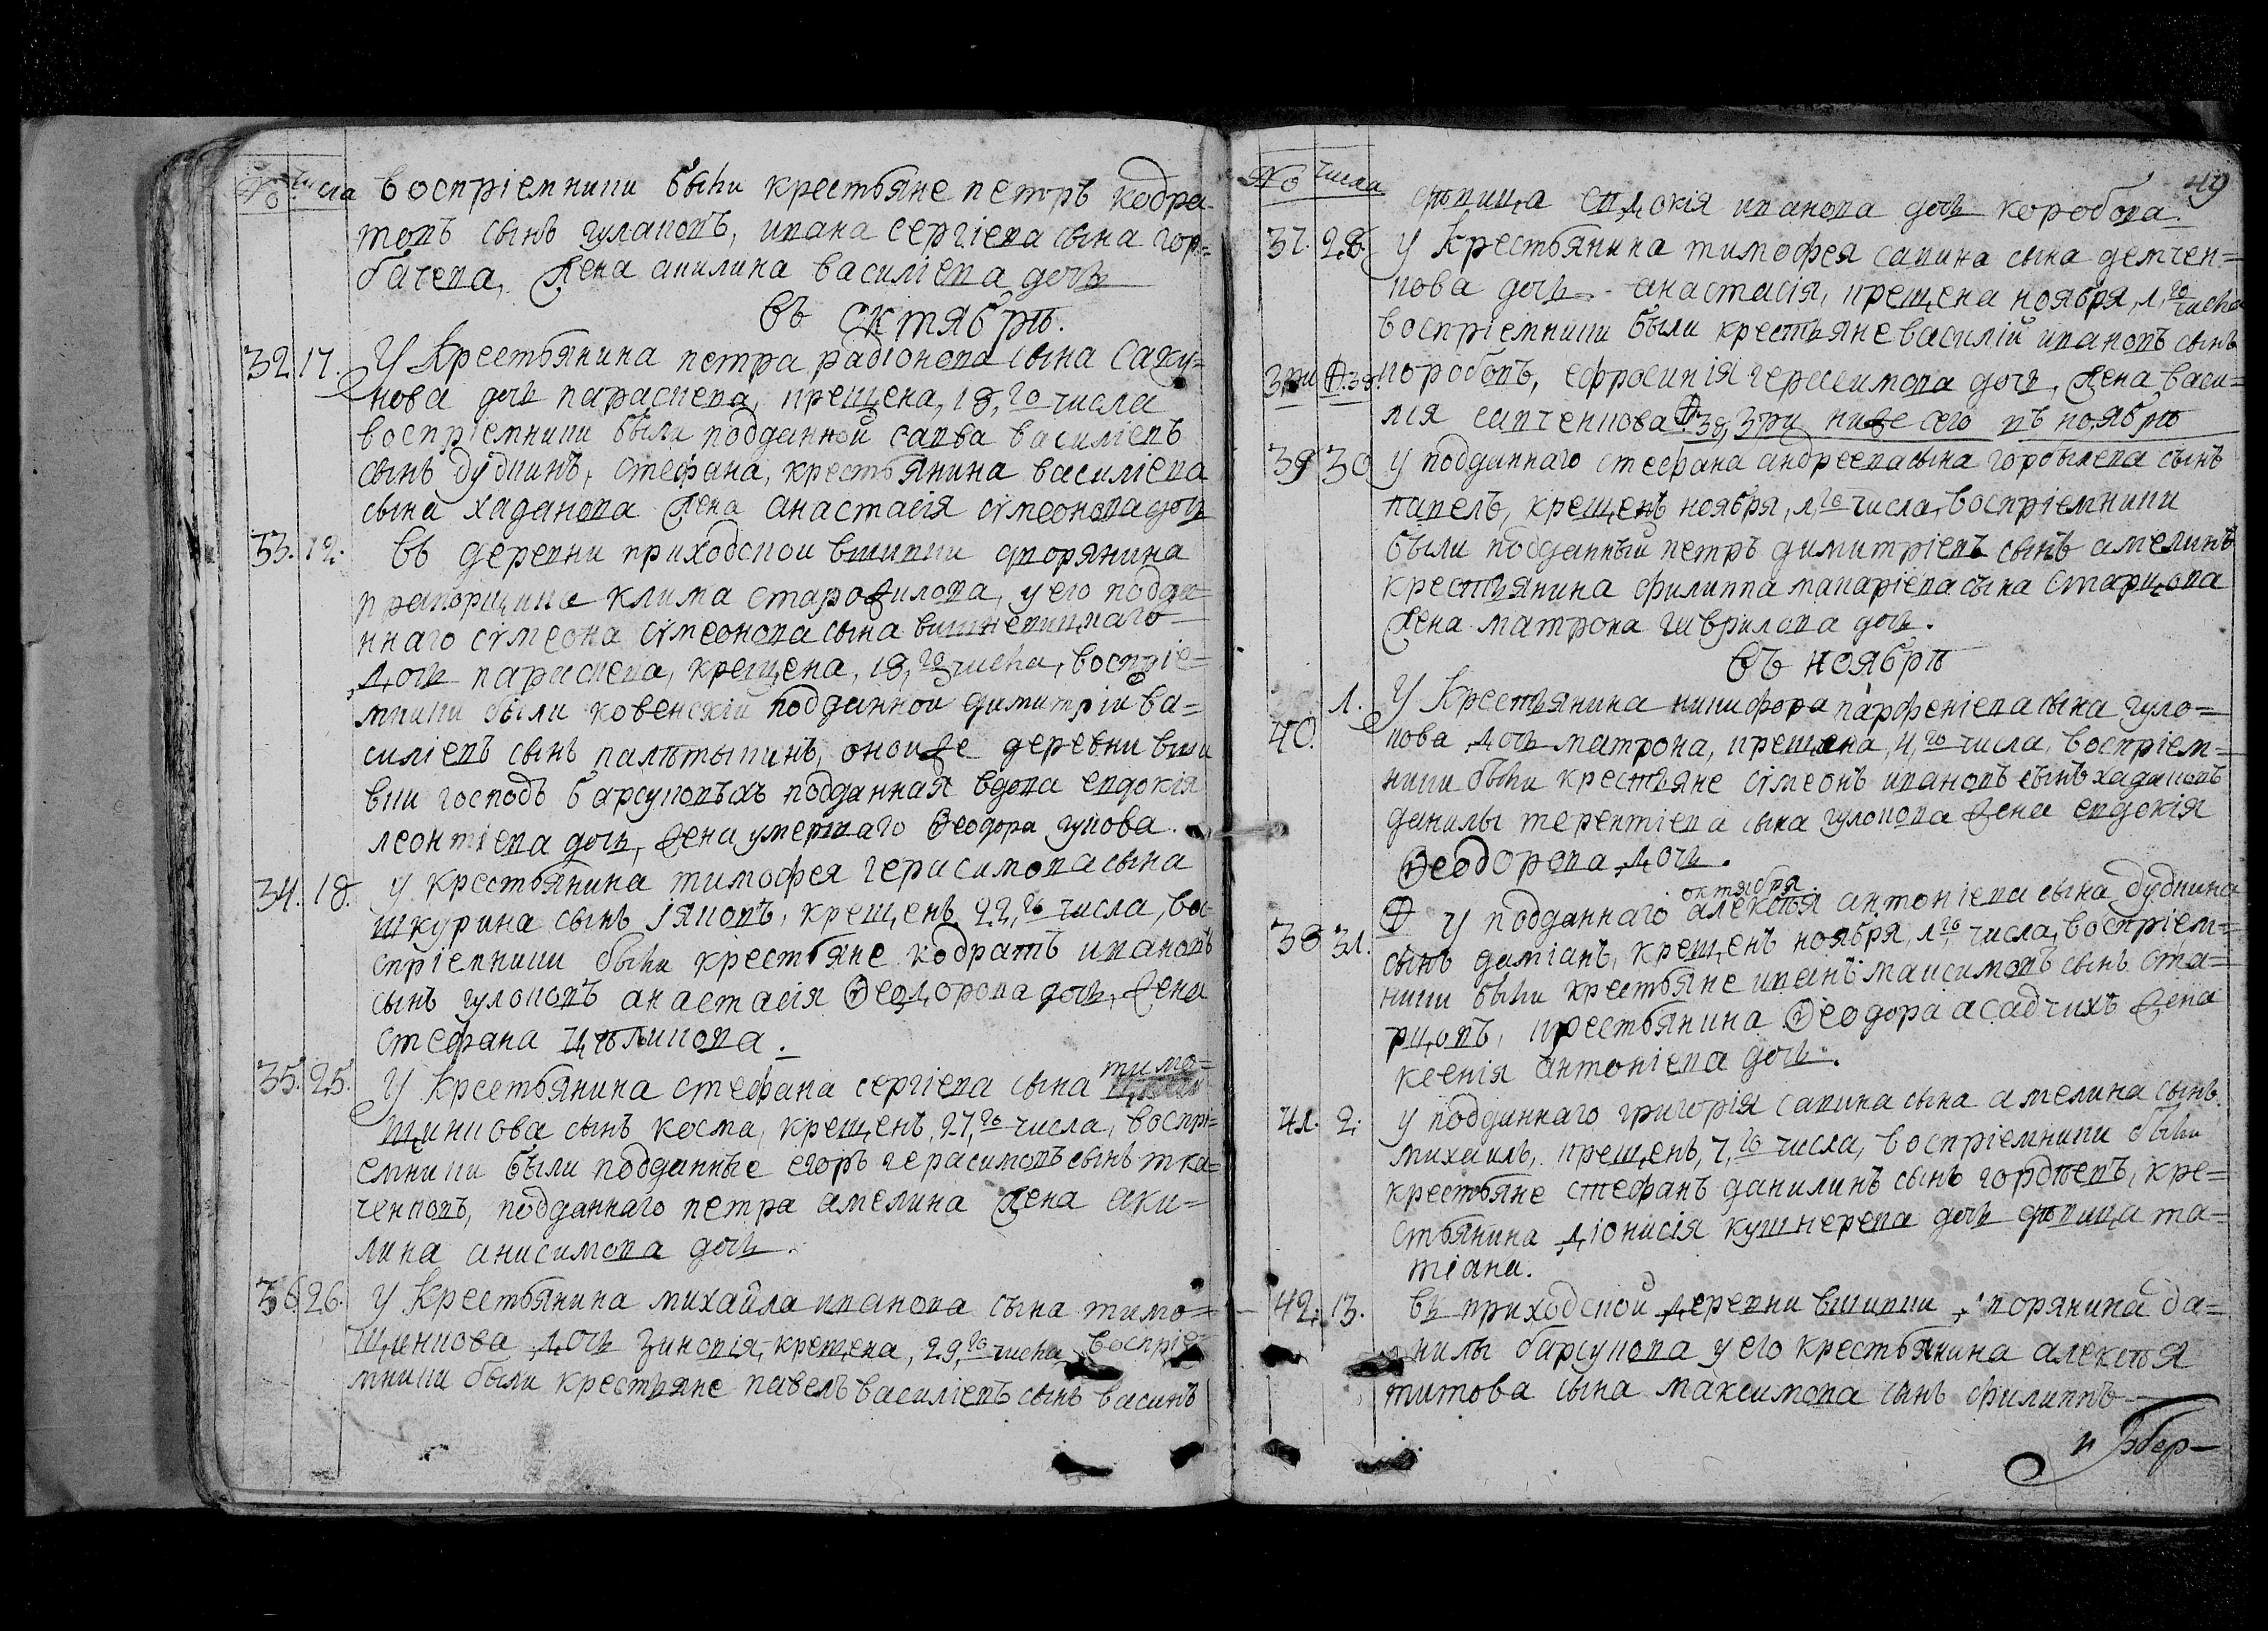 № числа
воспріемники были крестьяне петръ кодра-
товъ сынъ гулаковъ, ивана сергіева сына гор=
бачева, жена акилина василіева дочь
въ октябрѣ.
32. 17. У Крестьянина петра радіонова сына саку=
нова дочь параскева, крещена, 18,го числа
воспріемники были подданной савва василіевъ
сынъ дудкинъ, стефана, крестьянина василіева
сына хаданова жена анастасія сѵмеонова дочь
33. 12. Въ деревни приходской вшивки дворянина
прапорщика клима старожилова, у его подда=
ннаго сѵмеона сѵмеонова сына вишневицкаго
дочь параскева, крещена, 18,го числа, воспріе=
мники были ковенскій подданной димитрій ва=
силіевъ сынъ палѣтыкинъ, оной же деревни вши
вки господъ барсуковыхъ подданная вдова евдокія
леонтіева дочь, жена умершаго Ѳеодора гукова.
34. 18. У крестьянина тимофея герасимова сына
шкурина сынъ іяковъ, крещенъ, 22,го числа, вос
спріемники были крестьяне кодратъ ивановъ
сынъ гулоковъ анастасія Ѳеодорова дочь, жена
стефана цѣпликова.
35. 25. У Крестьянина стефана сергіева сына тимо=
щинкова сынъ косма, крещенъ, 27,го числа, воспрі=
емники были подданные егоръ герасимовъ сынъ тка=
ченковъ, подданнаго петра амелина жена аки=
лина анисимова дочь.
36. 26. У Крестьянина михайла иванова сына тимо=
щинкова дочь зиновія, крещена, 29,го числа воспріе
мники были крестьяне павелъ василіевъ сынъ васинъ
49
№ числа
дѣвица евдокія иванова дочь коробова.
37. 28. У Крестьянина тимофея савина сына демчен=
кова дочь анастасія, крещена ноября, 1,го числа
воспріемники были крестьяне василій ивановъ сынъ
зри 38. коробовъ, ефросинія герасимова дочь, жена васи=
лія савченкова 38, зри ниже сего въ ноябрѣ
39 30 У подданнаго стефана андреева сына горбылева сынъ
павелъ, крещенъ ноября, 1,го числа, воспріемники
были подданный петръ димитріевъ сынъ амелинъ
крестьянина филиппа макаріева сына старцова
жена матрона гаврилова дочь.
въ ноябрѣ
40. 1. У Крестьянина никифора парфеніева сына гуло=
кова дочь матрона, крещена, 4,го числа, воспріем=
ники были крестьяне сѵмеонъ ивановъ сынъ хадановъ
данилы терентіева сына гулокова жена евдокія
Ѳеодорова дочь.
октября
38 31. У подданнаго алексѣя антоніева сына дудкина
сынъ даміанъ, крещенъ ноября, 1го, числа, воспріем=
ники были крестьяне иванъ максимовъ сынъ ста=
рцовъ, крестьянина Ѳеодора асадчихъ жена
ксенія антоніева дочь.
41. 2. У подданнаго григорія савина сына амелина сынъ
михаилъ, крещенъ, 7,го числа, воспріемники были
крестьяне стефанъ данилинъ сынъ гордѣевъ, кре=
стьянина діонисія кушнерева дочь дѣвица та=
тіана.
42. 13. въ приходской деревни вшивки дворянина да=
нилы барсукова у его крестьянина алексѣя
титова сына максимова сынъ филиппъ